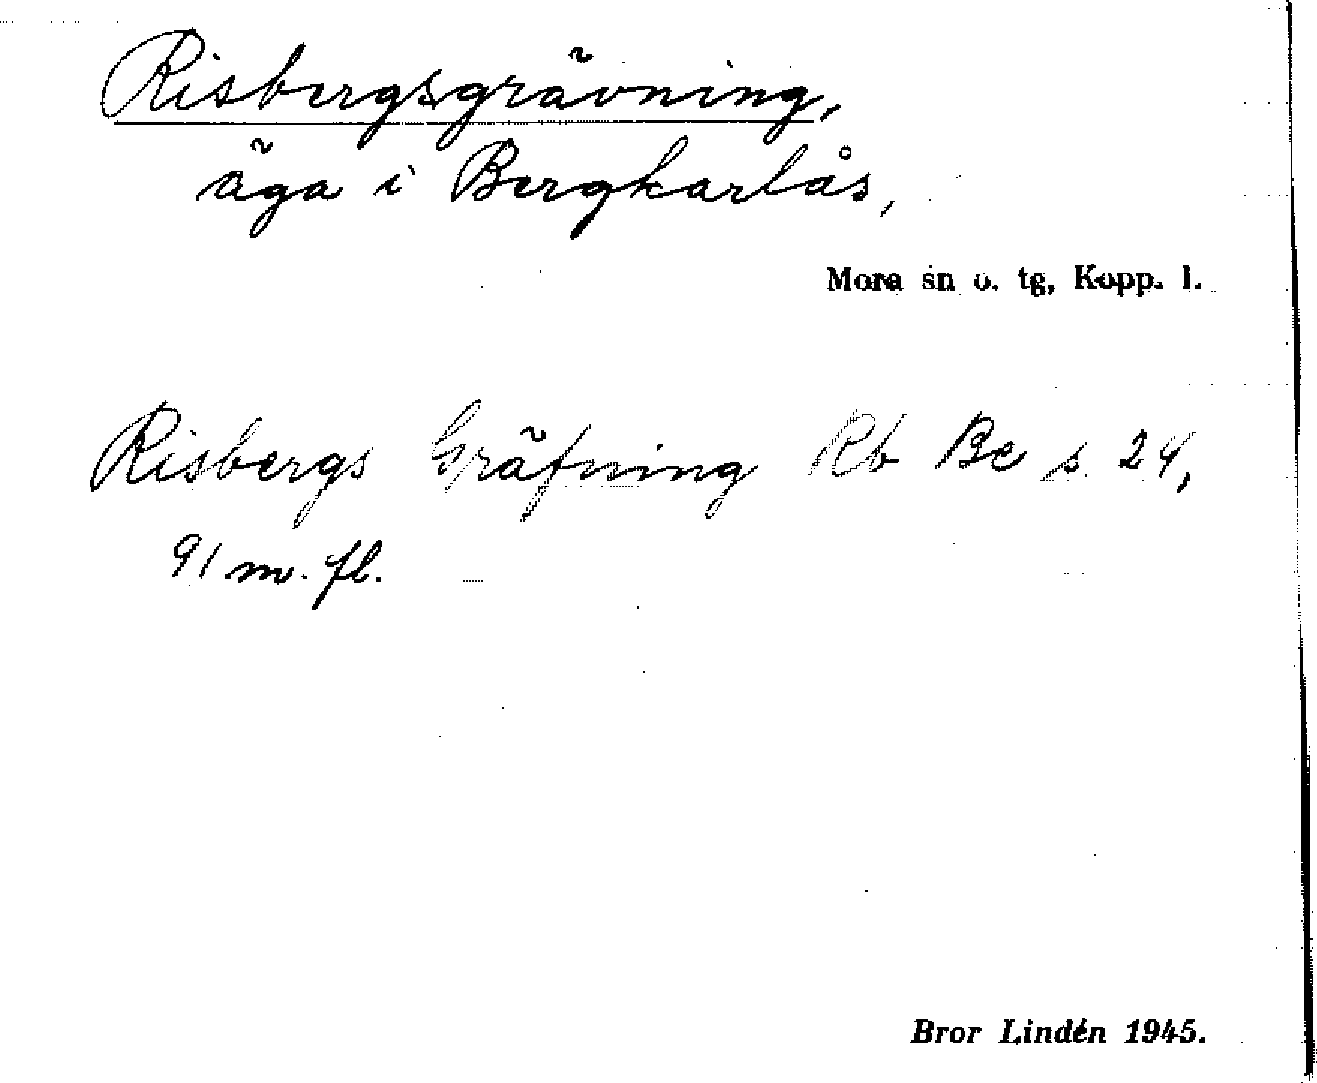 Risbergsgrävning,
äga i Bergkarlås,
Mora sn o. tg, Kopp. l.
Risbergs Gräfning Rb Be s 24,
91 m. fl.
Bror Lindén 1945.